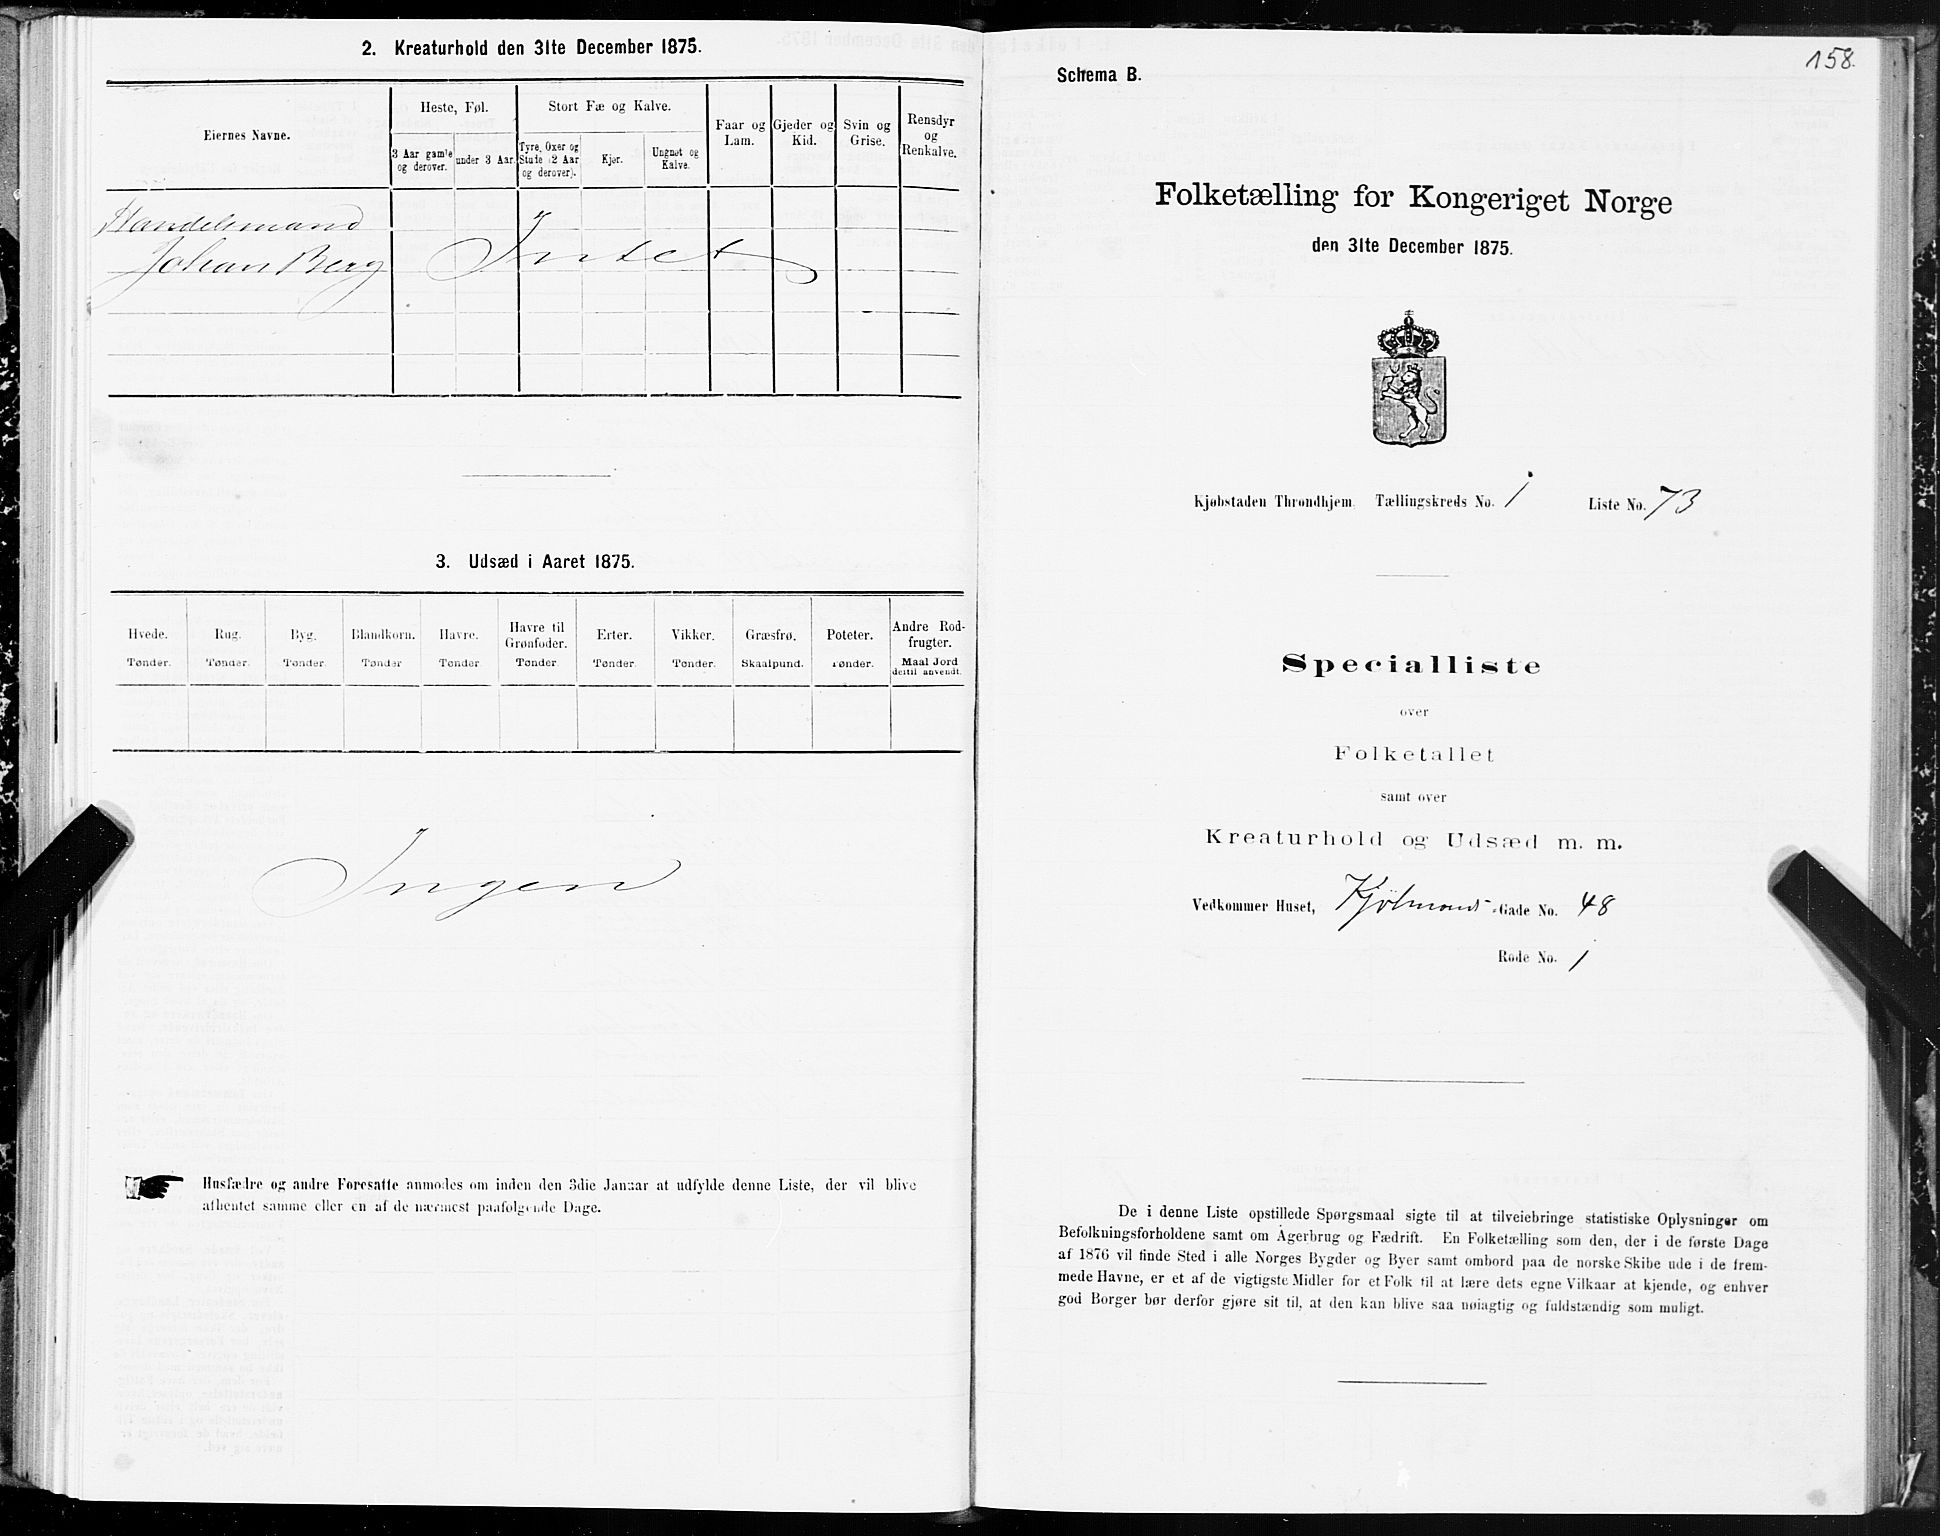 2. Kreaturhold den 31te December 1875.
Eiernes Navne.
Heste, Føl.
Stort Fæ og Kalve.
Faar og
Lam.
Gjeder og
Kid.
Svin og
Grise.
Rensdyr
og
Renkalve.
3 Aar gamle
og derover.
under 3 Aar.
Tyre, Oxer og
Stude (2 Aar
og derover).
Kjør.
Ungnøt og
Kalve.
Handelsmand
Johan Berg
Intet
3. Udsæd i Aaret 1875.
Hvede.
Tønder.
Rug.
Tønder.
Byg.
Tønder.
Blandkorn.
Tønder
Havre.
Tønder
Havre til
Grønfoder.
Tønder
Erter.
Tønder.
Vikker.
Tønder.
Græsfrø.
Skaalpund.
Poteter.
Tønder.
Andre Rod-
frugter.
Maal Jord
dertil anvendt.
Ingen
Husfædre og andre Foresatte anmodes om inden den 3die Januar at udfylde denne Liste, der vil blive
afhentet samme eller en af de nærmest paafølgende Dage.
158.
Schema B.
Folketælling for Kongeriget Norge
den 31te December 1875.
Kjøbstaden Throndhjem. Tællingskreds No. 1 Liste No. 73
Specialliste
over
Folketallet
samt over
Kreaturhold og Udsæd m. m.
Vedkommer Huset, Kjølmands-Gade No. 48
Rode No. 1
De i denne Liste opstillede Spørgsmaal sigte til at tilveiebringe statistiske Oplysninger om
Befolkningsforholdene samt om Agerbrug og Fædrift. En Folketælling som den, der i de første Dage
af 1876 vil finde Sted i alle Norges Bygder og Byer samt ombord paa de norske Skibe ude i de frem-
mede Havne, er et af de vigtigste Midler for et Folk til at lære dets egne Vilkaar at kjende, og enhver
god Borger bør derfor gjøre sit til, at den kan blive saa nøiagtig og fuldstændig som muligt.